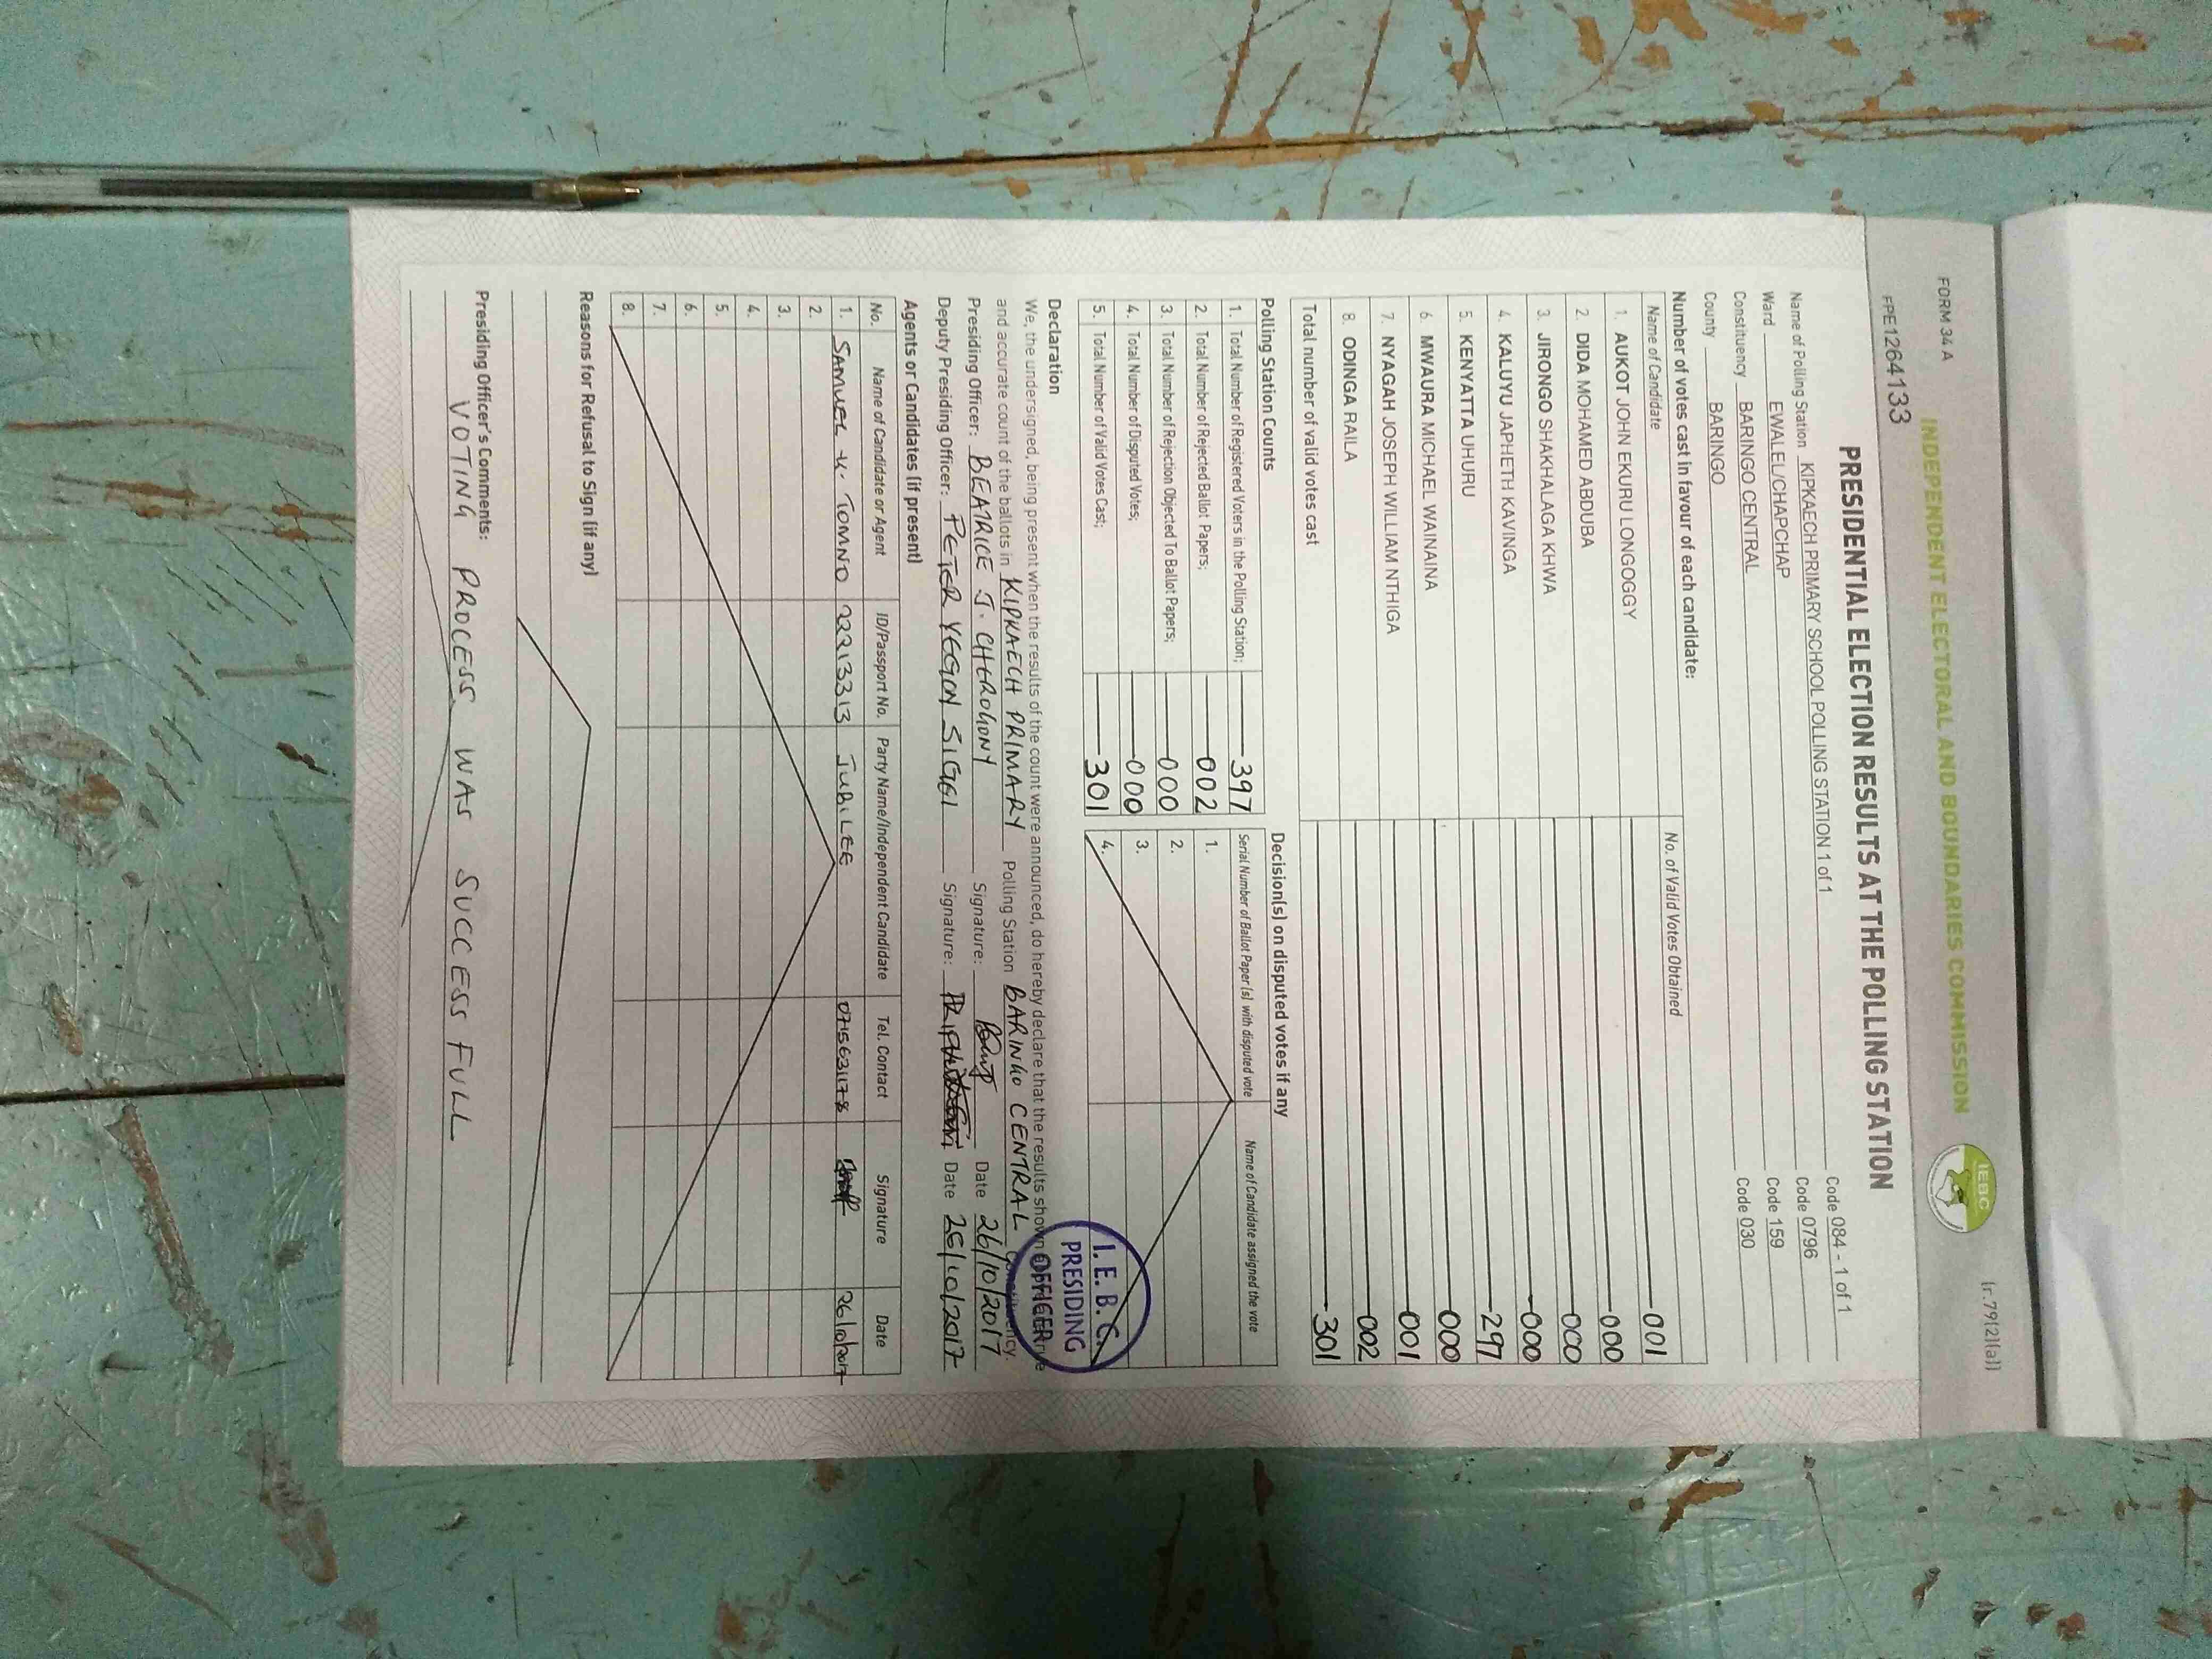 FORM 34 A
(r.79(2)(a))
INDEPENDENT ELECTORAL AND BOUNDARIES COMMISSION
IEBC
FPE1264133
PRESIDENTIAL ELECTION RESULTS AT THE POLLING STATION
Name of Polling Station KIPKAECH PRIMARY SCHOOL POLLING STATION 1 of 1 Code 084 - 1 of 1
Ward EWALEL/CHAPCHAP Code 0796
Constituency BARINGO CENTRAL Code 159
County BARINGO Code 030
Number of votes cast in favour of each candidate:
Name of Candidate No. of Valid Votes Obtained
1. AUKOT JOHN EKURU LONGOGGY 001
2. DIDA MOHAMED ABDUBA 000
3. JIRONGO SHAKHALAGA KHWA 000
4. KALUYU JAPHETH KAVINGA 000
5. KENYATTA UHURU 297
6. MWAURA MICHAEL WAINAINA 000
7. NYAGAH JOSEPH WILLIAM NTHIGA 001
8. ODINGA RAILA 002
Total number of valid votes cast 301
Polling Station Counts
1. Total Number of Registered Voters in the Polling Station; 397
2. Total Number of Rejected Ballot Papers; 002
3. Total Number of Rejection Objected To Ballot Papers; 000
4. Total Number of Disputed Votes; 000
5. Total Number of Valid Votes Cast; 301
Decision(s) on disputed votes if any
Serial Number of Ballot Paper(s) with disputed vote Name of Candidate assigned the vote
1.
2.
3.
4.
I. E. B. C.
PRESIDING
OFFICER
Declaration
We, the undersigned, being present when the results of the count were announced, do hereby declare that the results shown
and accurate count of the ballots in KIPKAECH PRIMARY Polling Station BARINGO CENTRAL Constituency.
Presiding Officer: BEATRICE J. CHEROGONY Signature: Date 26/10/2017
Deputy Presiding Officer: PETER YEGON SIGGI Signature: Date 26/10/2017
Agents or Candidates (if present)
No. Name of Candidate or Agent ID/Passport No. Party Name/Independent Candidate Tel. Contact Signature Date
1. SAMUEL K. TOMNO 22213313 JUBILEE 0715631178 26/10/2017
2.
3.
4.
5.
6.
7.
8.
Reasons for Refusal to Sign (if any)
Presiding Officer's Comments:
VOTING PROCESS WAS SUCCESS FULL